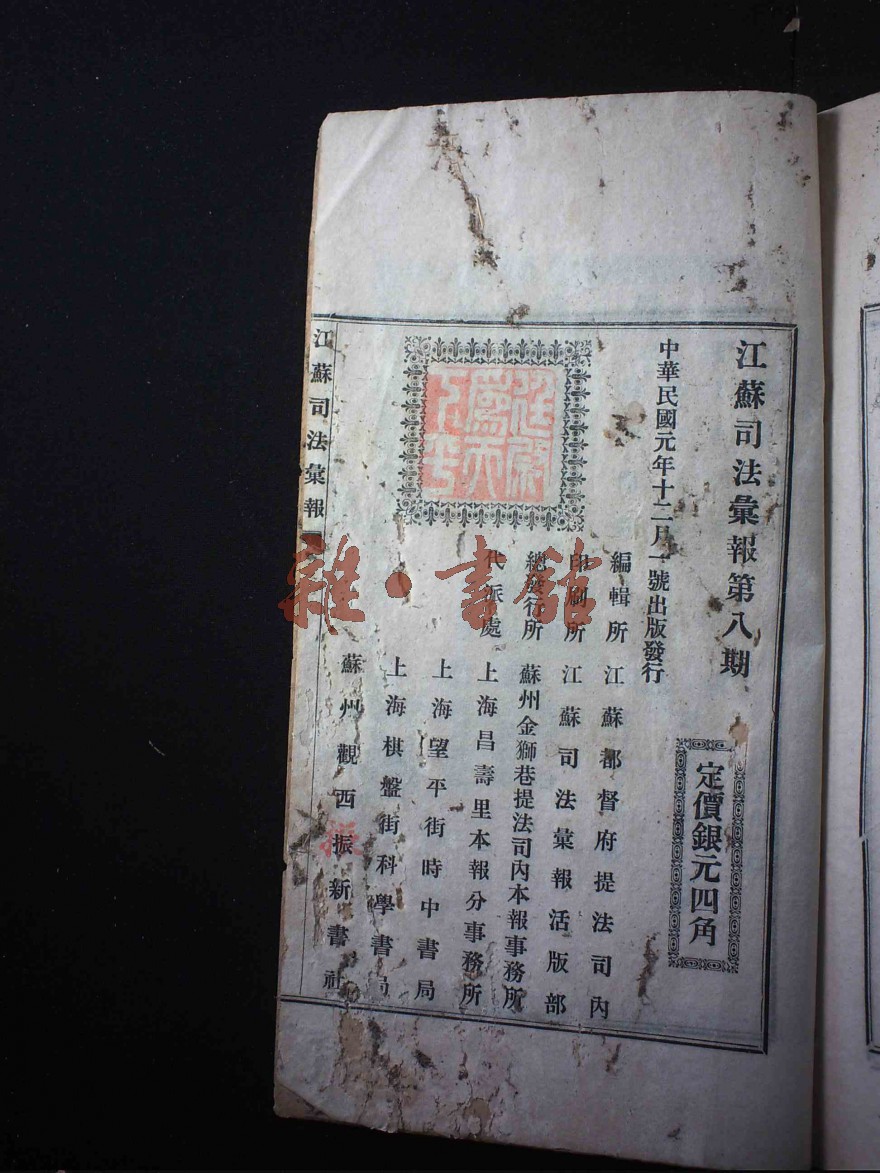 江蘇司法彙報第八期
定價銀元四角
中華民國元年十二月一號出版發行
編輯所 江蘇都督府提法司內
印刷所 江蘇司法彙報活版部
總發行所 蘇州金獅巷提法司內本報事務所
代派處 上海昌壽里本報分事務所
上海望平街時中書局
上海棋盤街科學書局
蘇州觀西振新書社
江蘇司法彙報
雜·書館